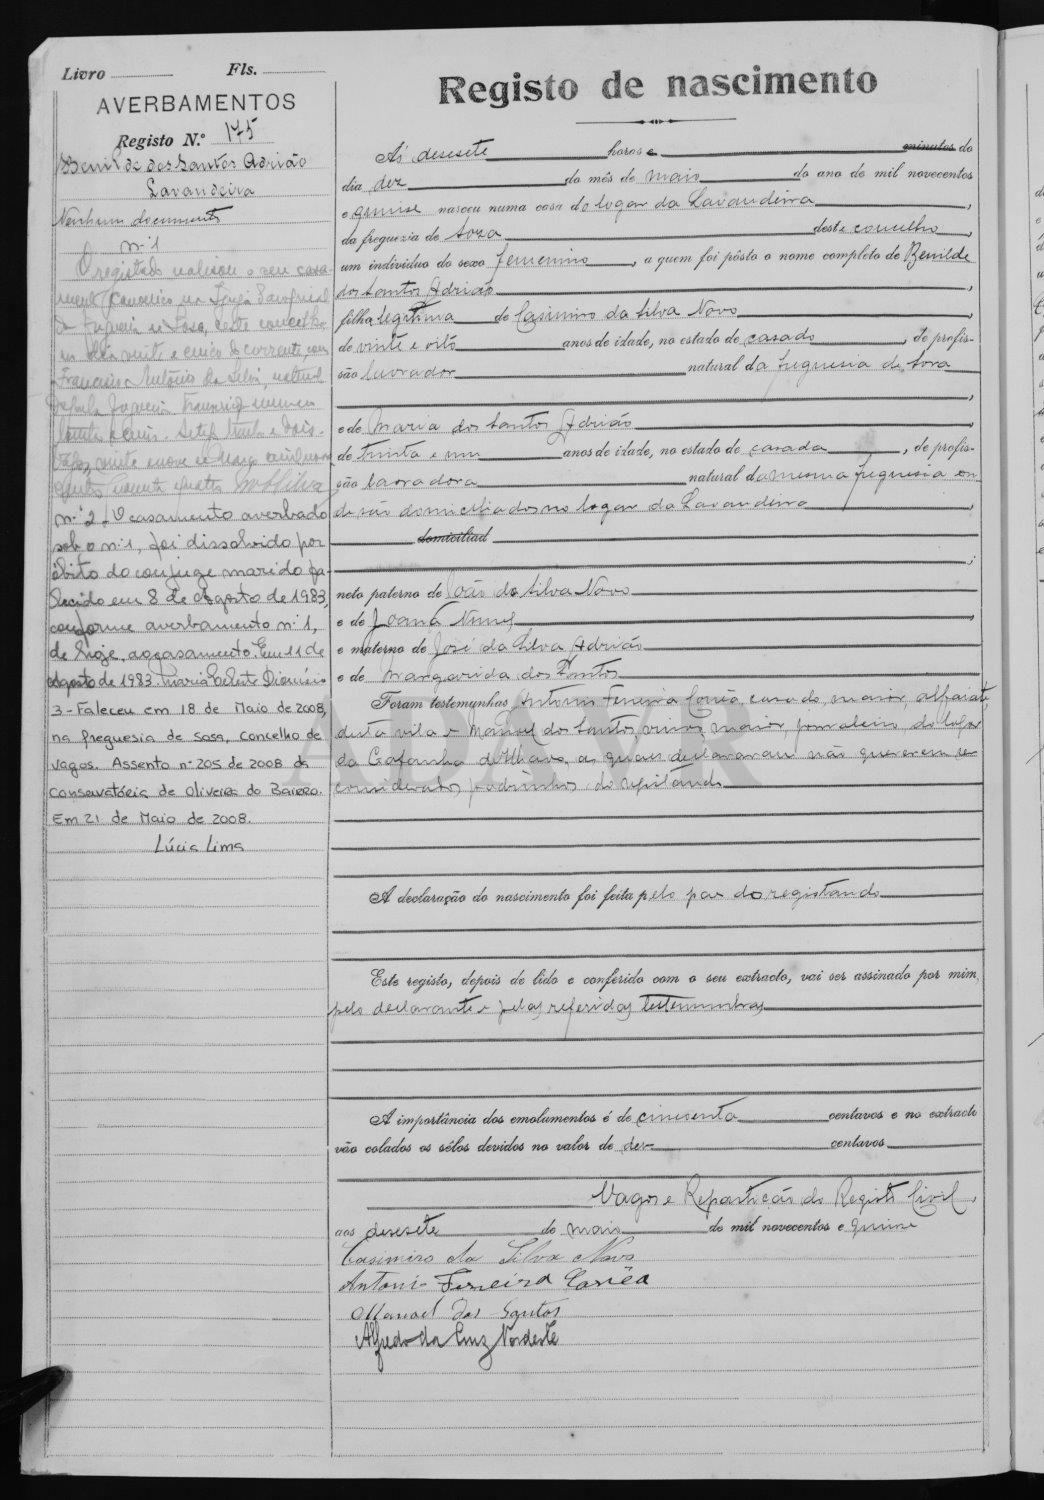 Livro Fls.
AVERBAMENTOS
Registo N.º 175
Benilde dos Santos Adrião
Lavandeira
Nenhum documento
n.º 1
O registado realizou o seu casa-
mento canonico na Igreja Paroquial
da freguesia de Sosa, deste concelho
no dia vinte e cinco do corrente, com
Francisco António da Silva, natural
daquela freguesia.
vinte e nove de Março
n.º 2 - O casamento averbado
sob o n.º 1, foi dissolvido por
óbito do conjuge marido fa-
lecido em 8 de Agosto de 1983,
conforme averbamento n.º 1,
de hoje, ao casamento. Em 11 de
Agosto de 1983. Maria Celeste Dionísio
3 - Faleceu em 18 de Maio de 2008,
na freguesia de Sosa, concelho de
Vagos. Assento nº 205 de 2008 da
Conservatória de Oliveira do Bairro.
Em 21 de Maio de 2008.
Lúcia Lima
Registo de nascimento
Ás desesete horas e minutos do
dia dez do mês de maio do ano de mil novecentos
e quinse nasceu numa casa do logar da Lavandeira,
da freguezia de Soza deste concelho,
um individuo do sexo femenino, a quem foi pôsto o nome completo de Benilde
dos Santos Adrião,
filha legitima de Casimiro da Silva Novo,
de vinte e oito anos de idade, no estado de casado, de profis-
são lavrador natural da freguesia de Soza,
e de Maria dos Santos Adrião,
de trinta e um anos de idade, no estado de casada, de profis-
são lavradora natural da mesma freguesia on-
de são domiciliados no logar da Lavandeira,
domiciliad
;
neto paterno de João da Silva Novo
e de Joana Nunes,
e materno de José da Silva Adrião
e de Margarida dos Santos
Foram testemunhas, Antonio Ferreira Corrêa, casado, maior, alfaiate,
desta vila e Manuel dos Santos, viuvo, maior, jornaleiro, do logar
da Gafanha d'Ilhavo, os quaes declararam não quererem ser
considerados padrinhos do registando
A declaração do nascimento foi feita pelo pae do registando
Este registo, depois de lido e conferido com o seu extracto, vai ser assinado por mim,
pelo declarante e pelas referidas testemunhas
A importância dos emolumentos é de cincoenta centavos e no extracto
vão colados os sêlos devidos no valor de dez centavos
Vagos e Repartição do Registo Civil,
aos desesete de maio de mil novecentos e quinse
Casimiro da Silva Novo
Antonio Ferreira Corrêa
Manoel dos Santos
Alfredo da Cruz Nordeste
ADAVR